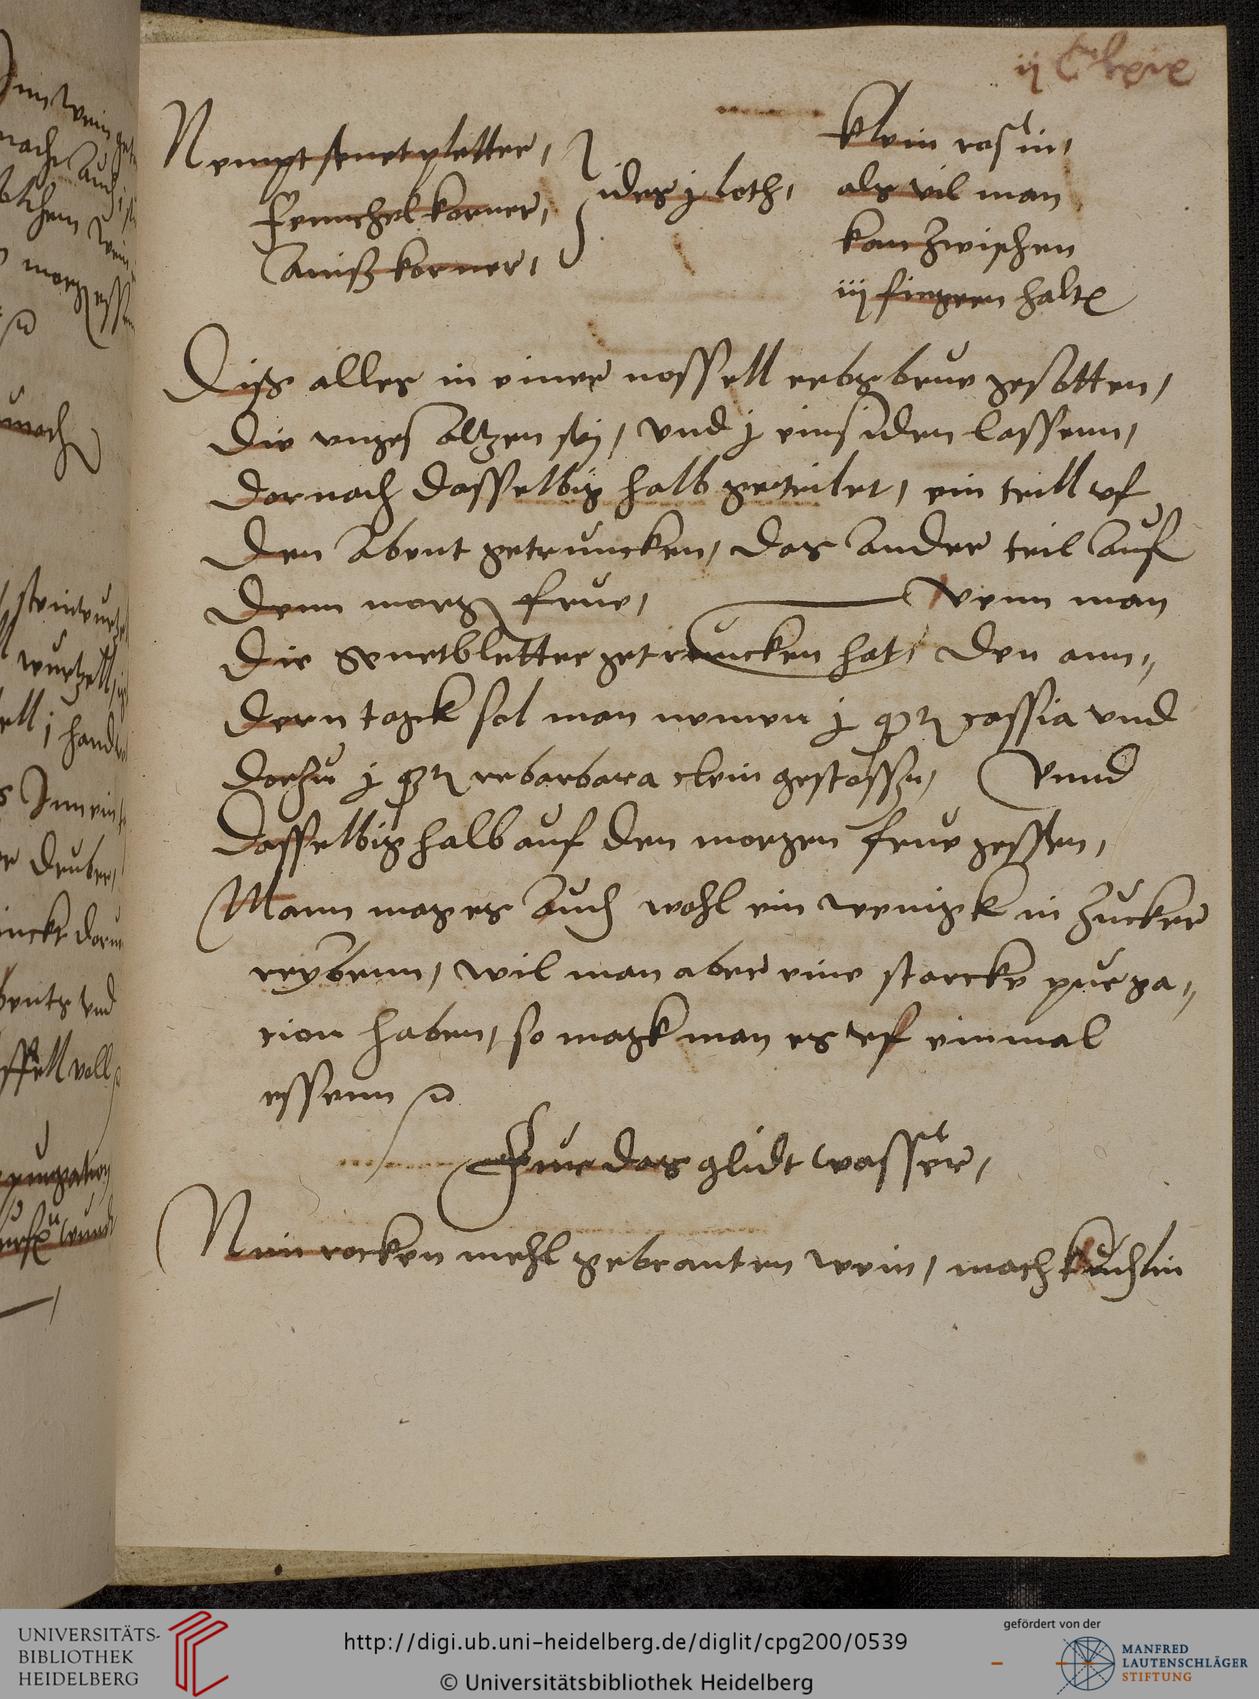 Nempt senet pletter,
fenuchel korner,
Aniß korner,
ides j loth,
klein rosin,
als vil man
kan zwischen
iij fingern halt
Diß alles in einer nossell erbsbrue gesotten,
die ungesaltzen sey, vnd j einsiden lassenn,
dornoch dasselbig halb geteilet, ein teill vf
den Abent getruncken, das Ander teil Auf
denn morg frue, wenn man
die Senetbletter getruncken hat, den ann-
dern tagk sol man nemen j cassia vnd
dorzu j rebarbara clein gestossen, Vnnd
dasselbig halb auf den morgen frue gessen,
Mann mag es Auch wohl ein wenigk in Zucker
reybenn, wil man aber eine starcke purga-
cion haben, so magk man es vf einmal
essenn
Fur das glidt wasser,
Nim rocken mehl gebranten wein, mach kuchlin
UNIVERSITÄTS-
BIBLIOTHEK
HEIDELBERG
http://digi.ub.uni-heidelberg.de/diglit/cpg200/0539
© Universitätsbibliothek Heidelberg
gefördert von der
MANFRED
LAUTENSCHLÄGER
STIFTUNG